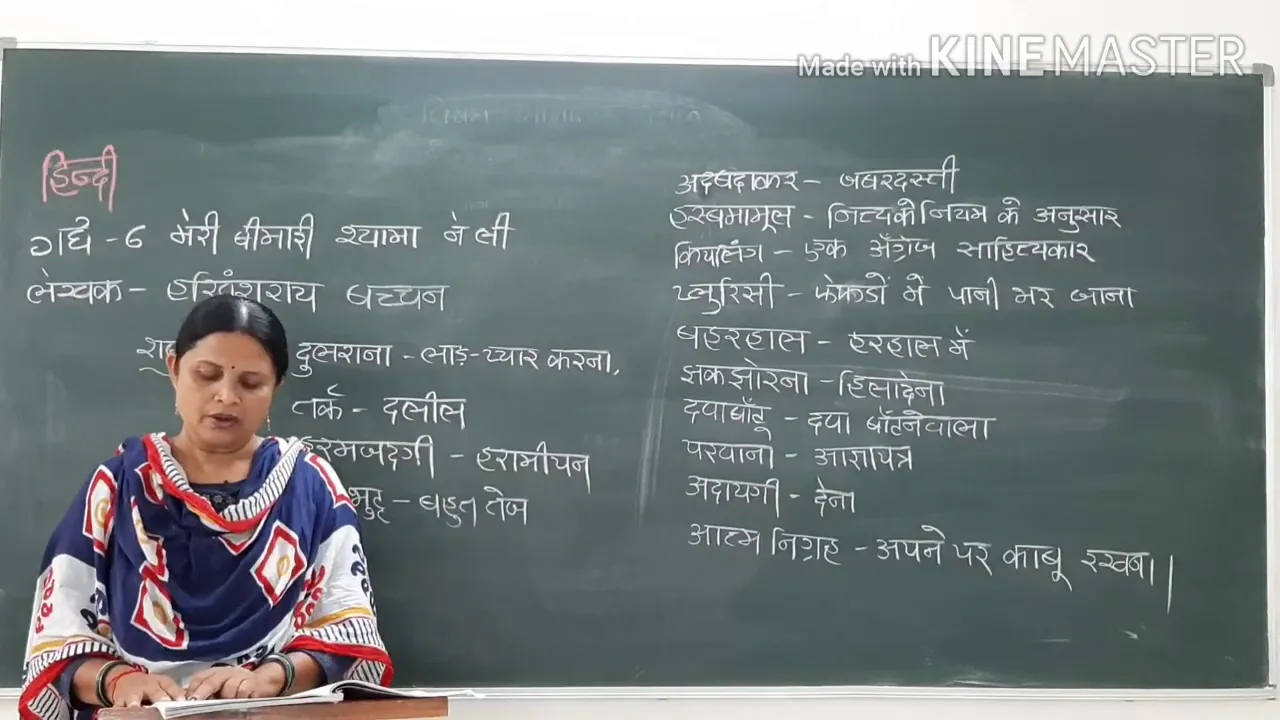 Made with KINEMASTER
हिन्दी
गद्य - 6 मेरी बीमारी श्यामा ने ली
लेखक - हरिवंशराय बच्चन
दुलराना - लाड़-प्यार करना,
तर्क - दलील
हरमजदगी - हरामीपन
बहुत तेज
अदबदाकर - जबरदस्ती
हस्बमामूल - नित्यके नियम के अनुसार
किपलिंग - एक अँग्रेज साहित्यकार
प्लुरिसी - फेफडों में पानी भर जाना
बहरहाल - हरहाल में
झकझोरना - हिलादेना
दवाबाँटू - दवा बाँटनेवाला
परवानो - आज्ञापत्र
अदायगी - देना
आत्म निग्रह - अपने पर काबू रखना।